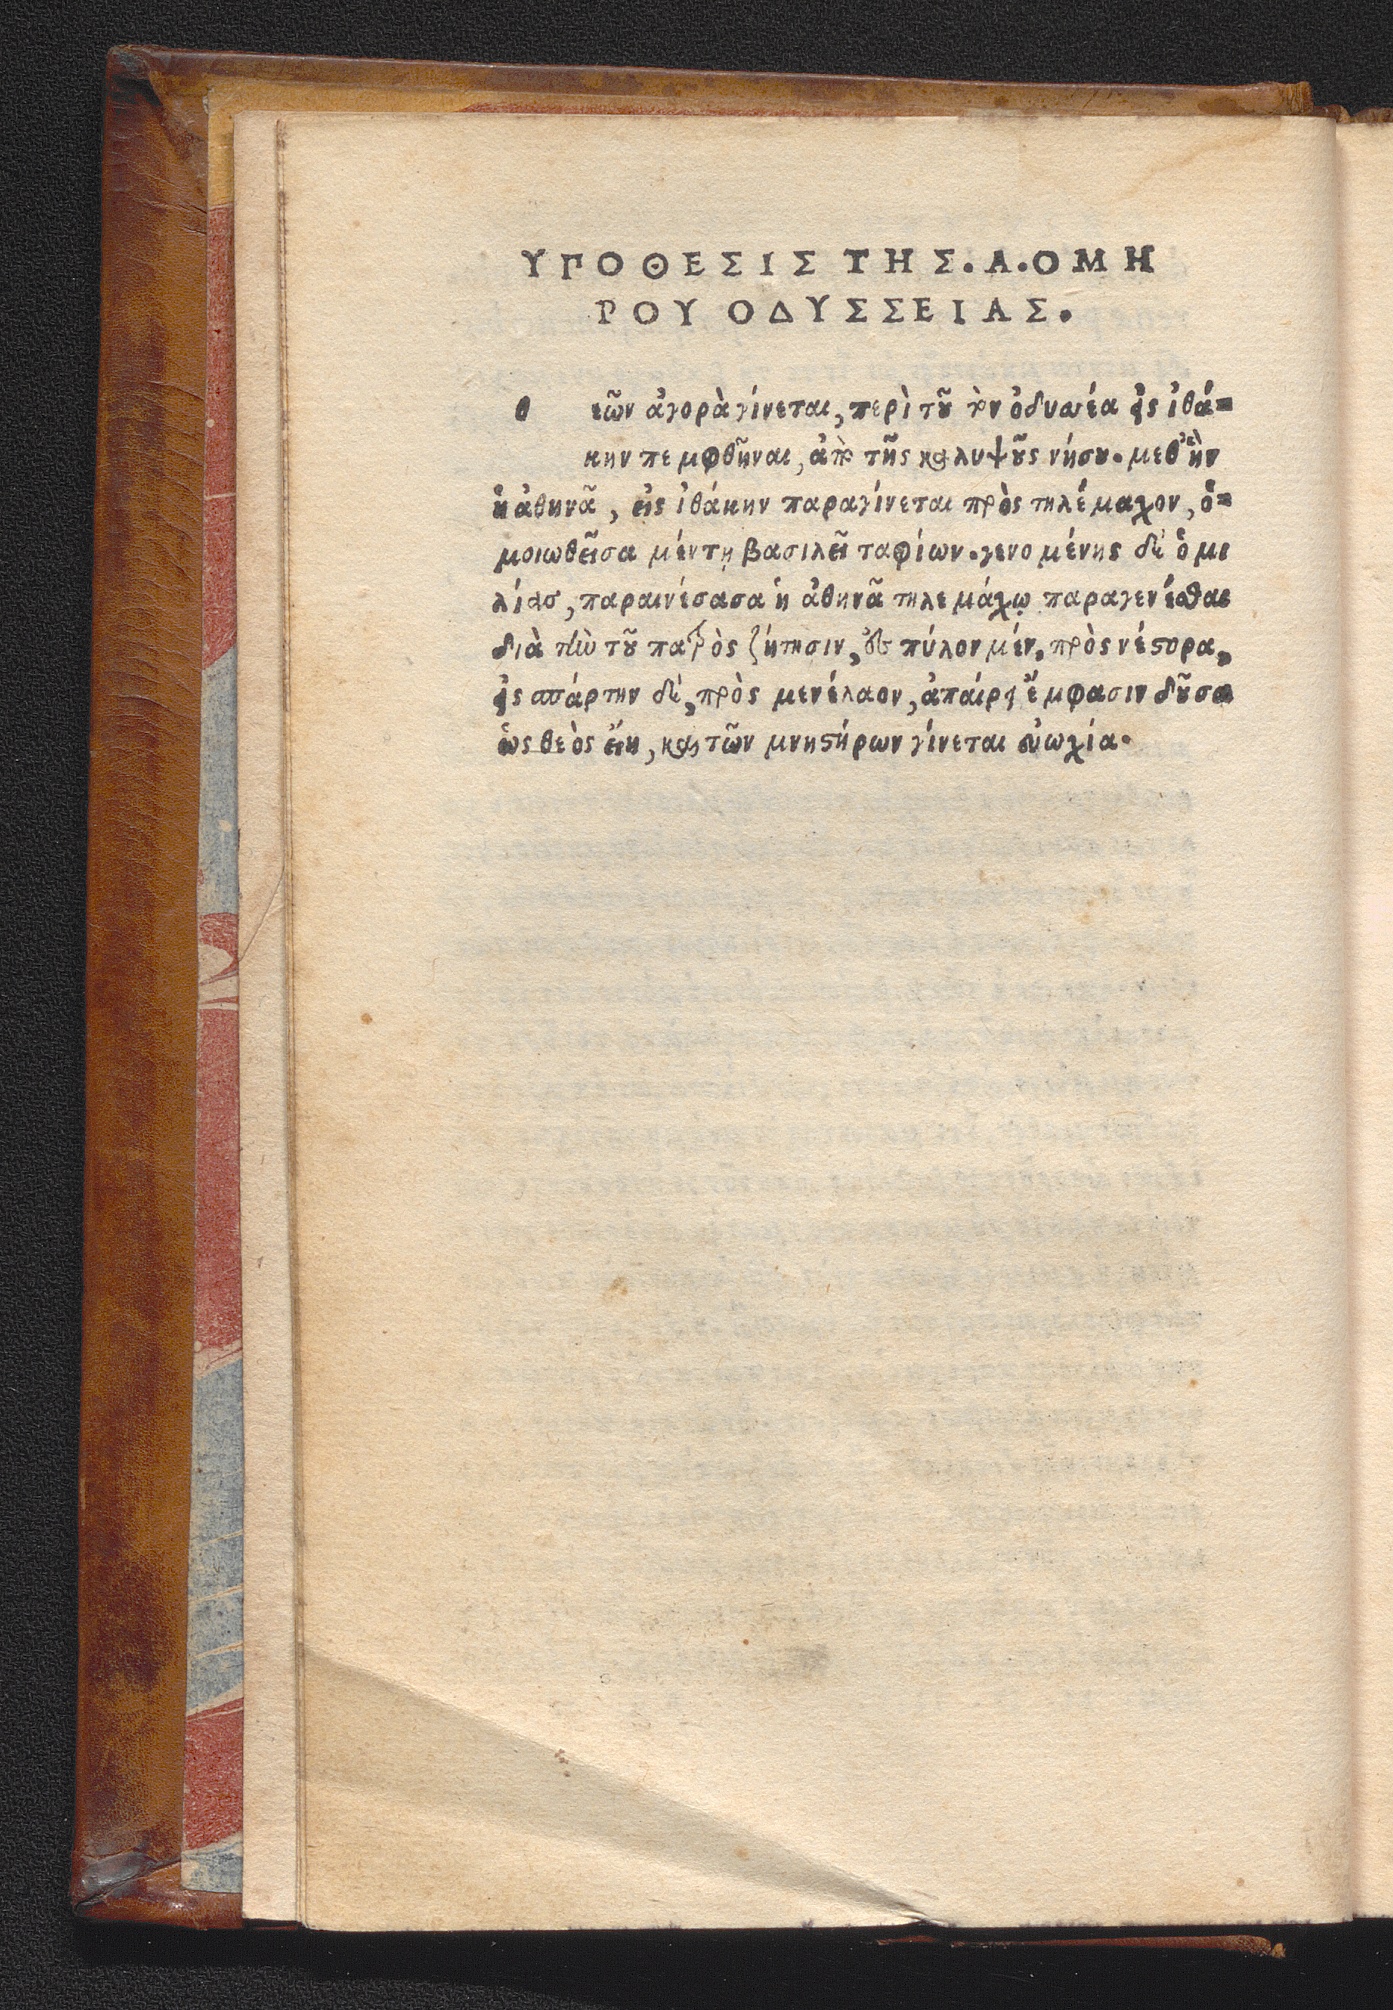 ΥΠΟΘΕΣΙΣ ΤΗΣ.Α.ΟΜΗ
ΡΟΥ ΟΔΥΣΣΕΙΑΣ.
θ εῶν ἀγορὰ γίνεται, περὶ τοῦ τὸν ὀδυσσέα εἰς ἰθά=
κην πεμφθῆναι, ἀπὸ τῆς καλυψοῦς νήσου. μεθ' ἣν
ἡ ἀθηνᾶ, εἰς ἰθάκην παραγίνεται πρὸς τηλέμαχον, ὁ=
μοιωθεῖσα μέντῃ βασιλεῖ ταφίων. γενομένης δὲ ὁμι
λίας, παραινέσασα ἡ ἀθηνᾶ τηλεμάχῳ παραγενέσθαι
διὰ τὴν τοῦ πατρὸς ζήτησιν, εἰς πύλον μέν, πρὸς νέστορα,
εἰς σπάρτην δέ, πρὸς μενέλαον, ἀπαίρει ἔμφασιν δοῦσα
ὡς θεὸς εἴη, καὶ τῶν μνηστήρων γίνεται εὐωχία.